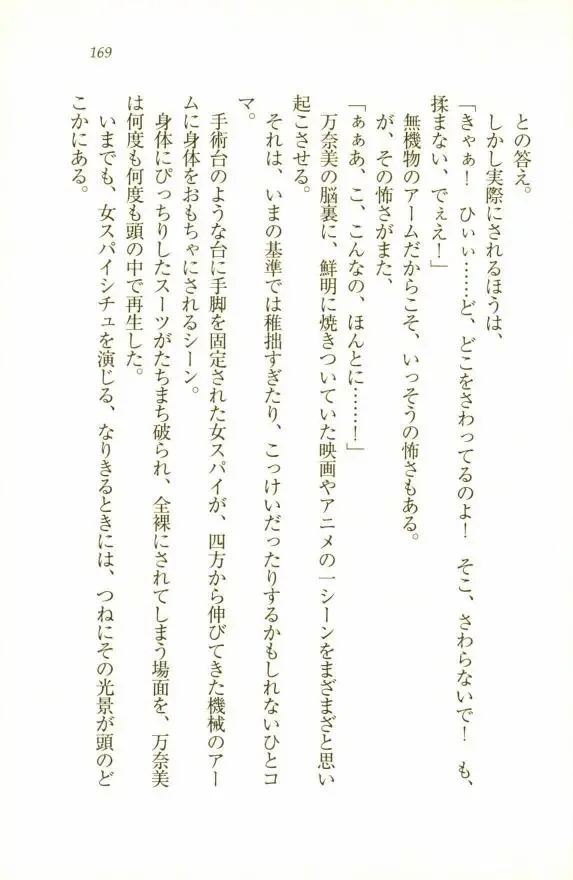 169
との答え。
しかし実際にされるほうは、
「きゃぁ！　ひぃぃ……ど、どこをさわってるのよ！　そこ、さわらないで！　も、
揉まない、でぇえ！」
無機物のアームだからこそ、いっそうの怖さもある。
が、その怖さがまた、
「ぁぁあ、こ、こんなの、ほんとに……！」
万奈美の脳裏に、鮮明に焼きついていた映画やアニメの一シーンをまざまざと思い
起こさせる。
それは、いまの基準では稚拙すぎたり、こっけいだったりするかもしれないひとコ
マ。
手術台のような台に手脚を固定された女スパイが、四方から伸びてきた機械のアー
ムに身体をおもちゃにされるシーン。
身体にぴっちりしたスーツがたちまち破られ、全裸にされてしまう場面を、万奈美
は何度も何度も頭の中で再生した。
いまでも、女スパイシチュを演じる、なりきるときには、つねにその光景が頭のど
こかにある。